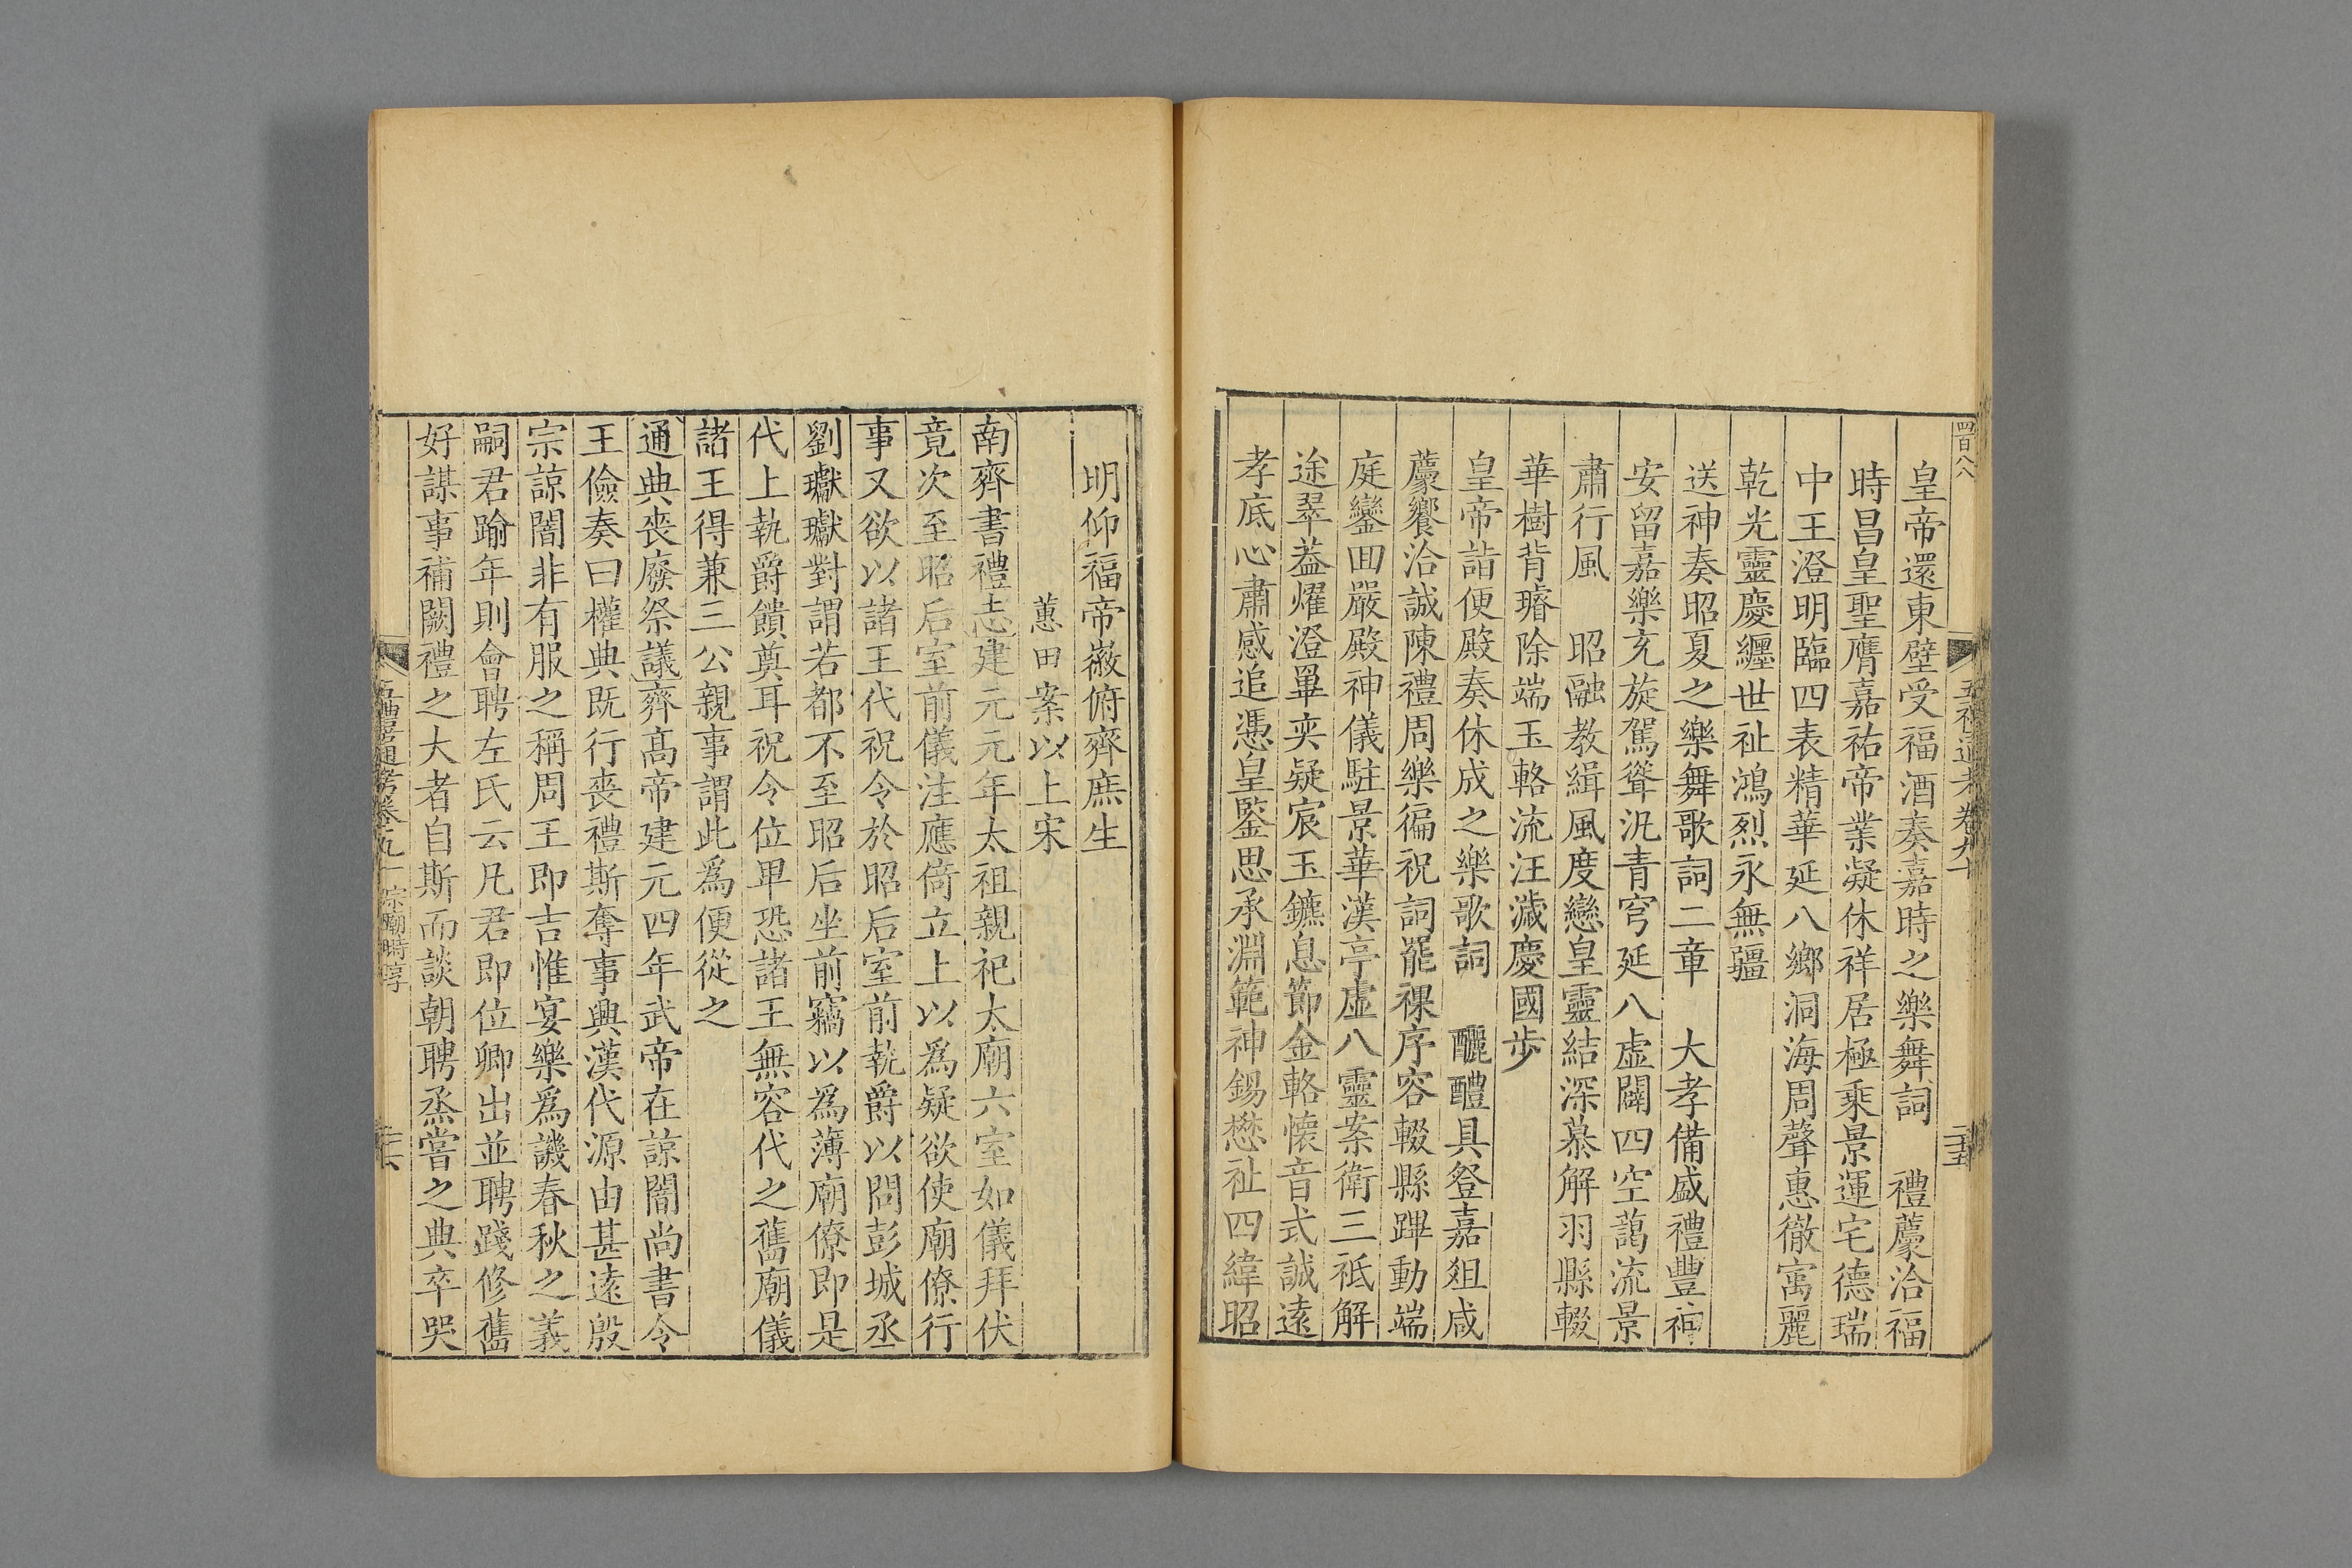 四百八八
皇帝還東壁受福酒奏嘉時之樂舞詞　禮薦洽福
時昌皇聖膺嘉祐帝業凝休祥居極乘景運宅德瑞
中王澄明臨四表精華延八鄉洞海周聲惠徹㝢麗
乾光靈慶纏世祉鴻烈永無疆
送神奏昭夏之樂舞歌詞二章　大孝備盛禮豐神
安留嘉樂充旋駕聳汎青穹延八虛闢四空藹流景
肅行風　昭融教緝風度戀皇靈結深慕解羽縣輟
華樹背璿除端玉輅流汪濊慶國步
皇帝詣便殿奏休成之樂歌詞　醴醴具登嘉俎咸
薦饗洽誠陳禮周樂徧祝詞罷祼序容輟縣蹕動端
庭鑾囬嚴殿神儀駐景華漢亭虛八靈案衛三祇解
途翠葢燿澄罼奕凝宸玉鑣息節金輅懷音式誠遠
孝底心肅感追憑皇鑒思承淵範神錫懋祉四緯昭
五禮通考卷九十
二十五
明仰福帝徽俯齊庶生
蕙田案以上宋
南齊書禮志建元元年太祖親祀太廟六室如儀拜伏
竟次至昭后室前儀注應倚立上以為疑欲使廟僚行
事又欲以諸王代祝令於昭后室前執爵以問彭城丞
劉瓛瓛對謂若都不至昭后坐前竊以為薄廟僚即是
代上執爵饋奠耳祝令位卑恐諸王無容代之舊廟儀
諸王得兼三公親事謂此為便從之
通典喪廢祭議齊高帝建元四年武帝在諒闇尚書令
王儉奏曰權典既行喪禮斯奪事興漢代源由甚遠殷
宗諒闇非有服之稱周王即吉惟宴樂為譏春秋之義
嗣君踰年則會聘左氏云凡君即位卿出並聘踐修舊
好謀事補闕禮之大者自斯而談朝聘烝嘗之典卒哭
五禮通考卷九十　宗廟時享
二十六